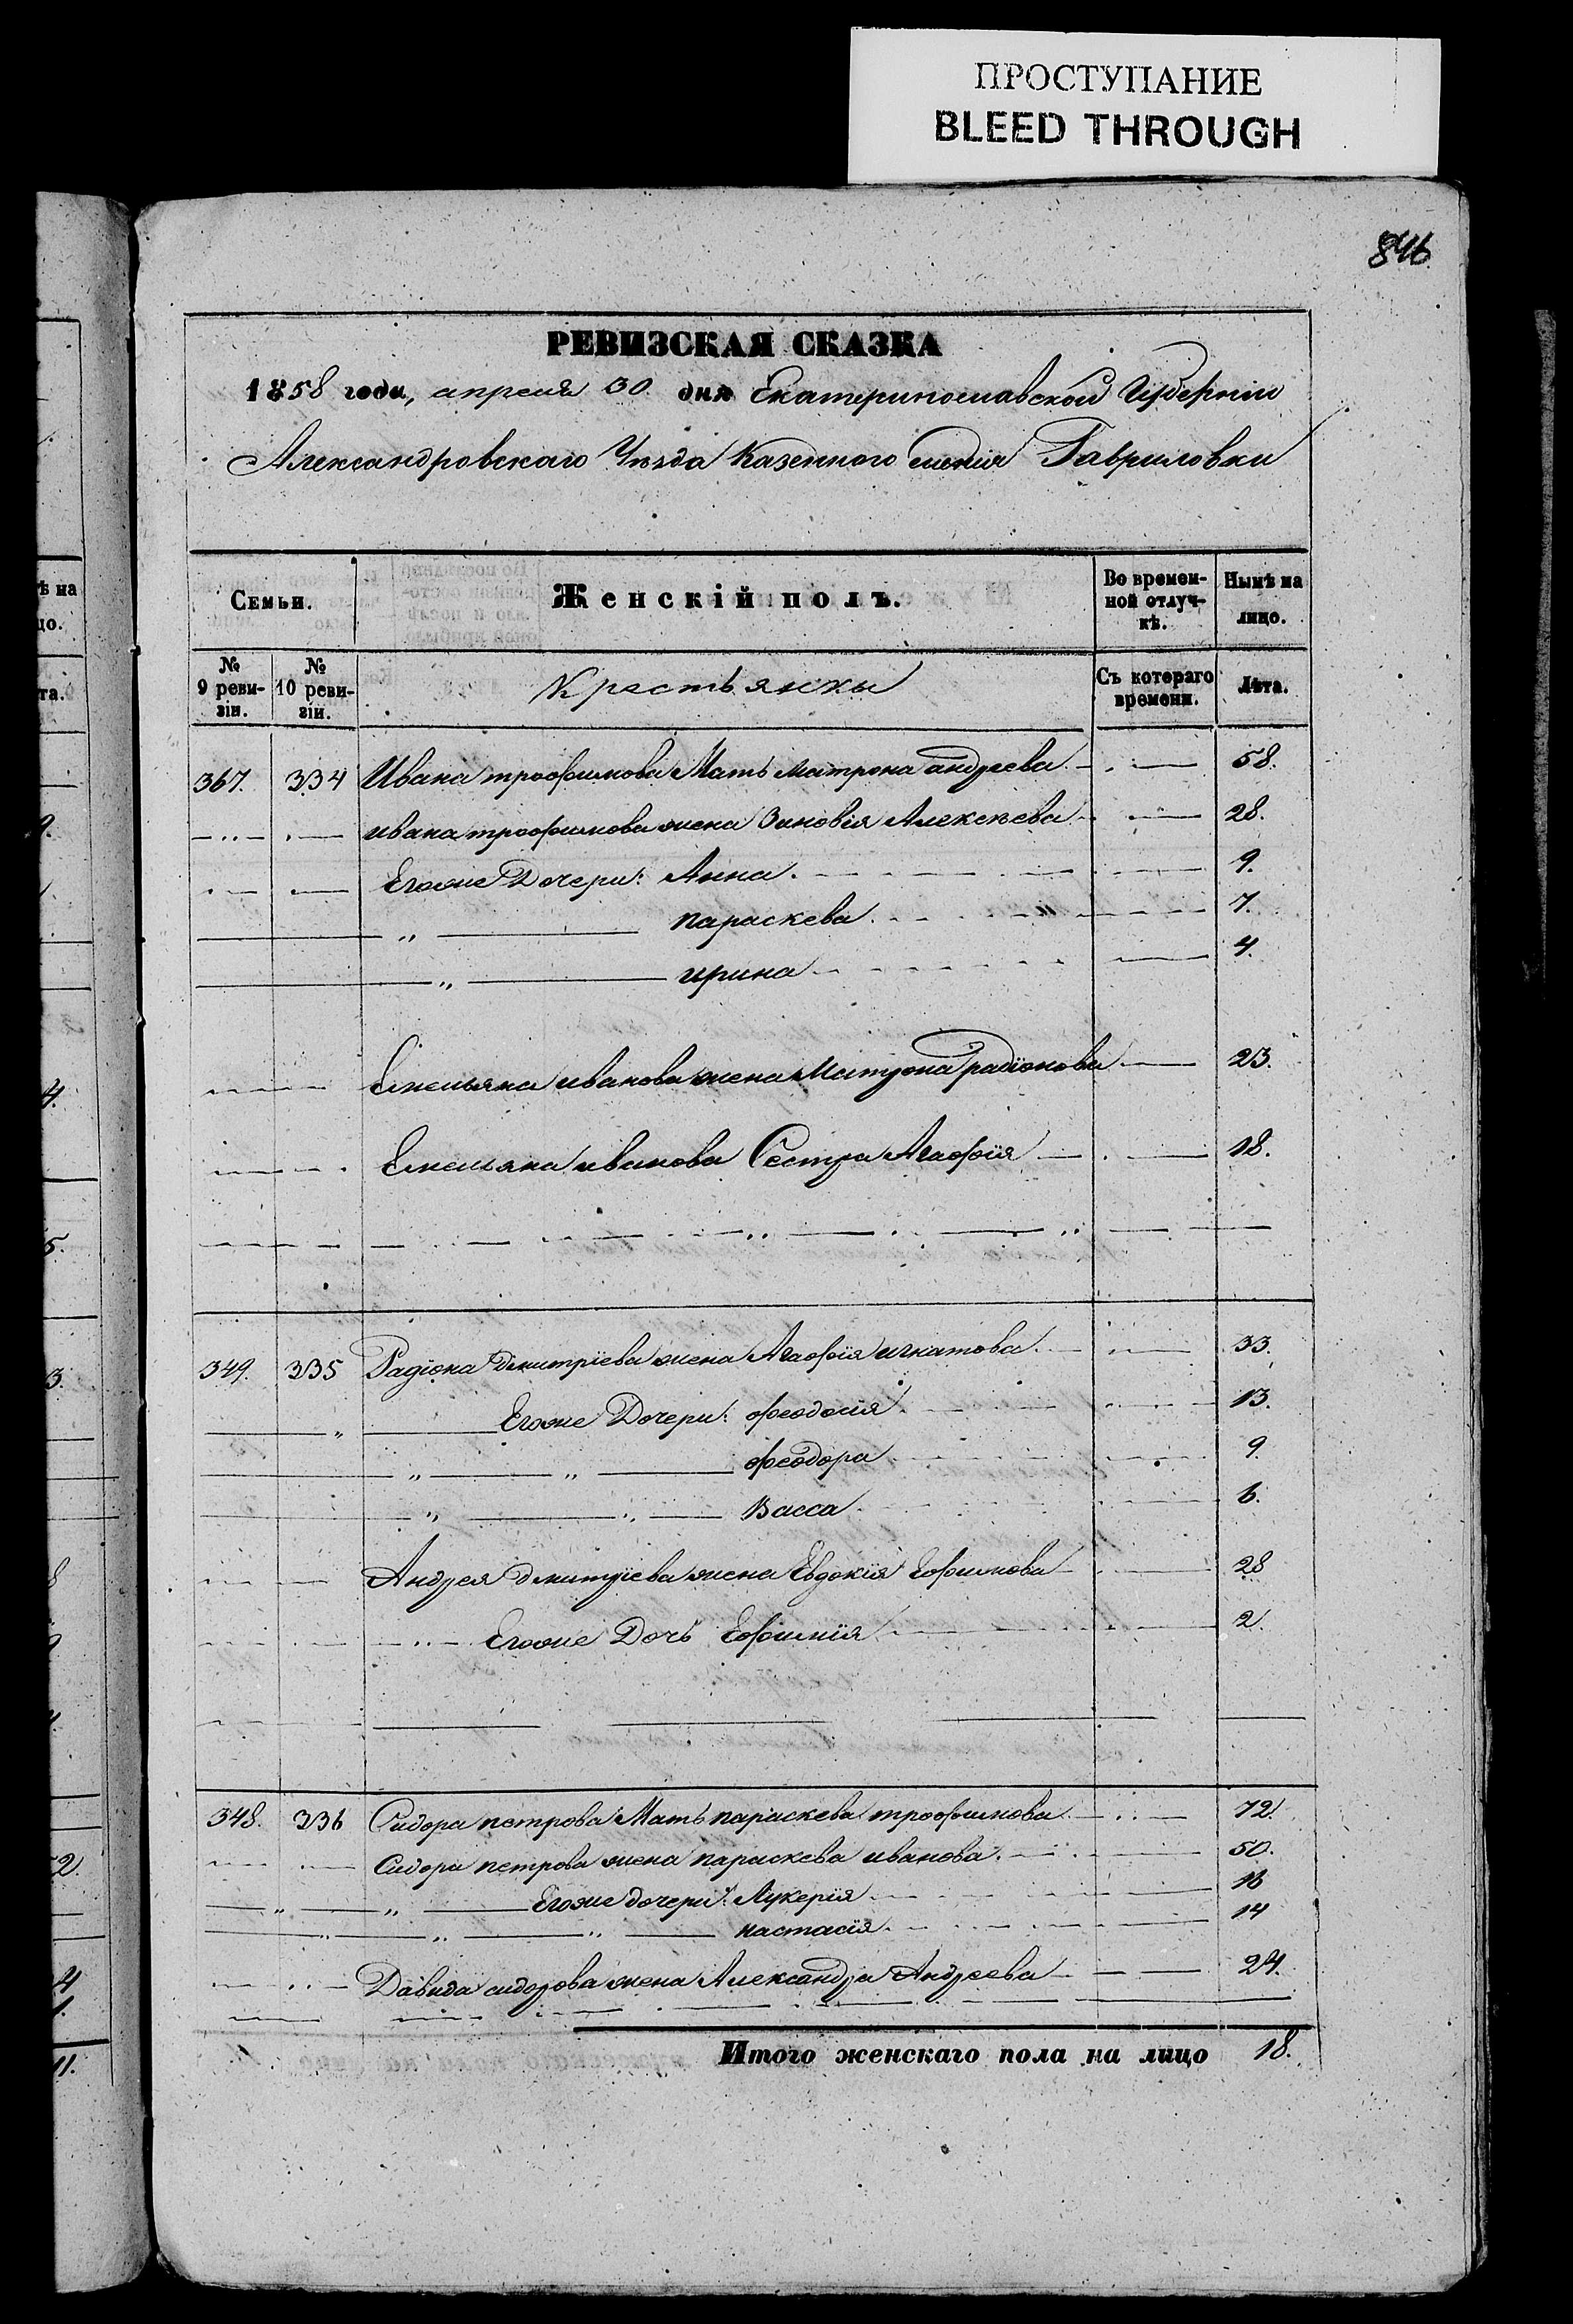 ПРОСТУПАНИЕ
BLEED THROUGH
846
РЕВИЗСКАЯ СКАЗКА
1858 года, апреля 30 дня Екатеринославской Губерніи
Александровскаго Уѣзда Казенного Гавриловки
Семьи. Женскій полъ. Во времен-ной отлуч-кѣ. Нынѣ на лицо.
№ 9 реви-зіи. № 10 реви-зіи. Крестьянки Съ котораго времени. Лѣта.
367. 334 Ивана трофимова Мать Матрона андреева 58.
ивана трофимова жена Зиновія Алексѣева 28.
Егоже Дочери: Анна 9.
параскева 7.
ирина 4.
Емельяна иванова жена Матрона радіонова 23.
Емельяна иванова Сестра Агафія 18.
349. 335 Радіона Дмитріева жена Агафія игнатова 33.
Егоже Дочери: феодосія 13.
феодора 9.
Васса 6.
Андрея Дмитріева жена Евдокія Ефимова 28
Егоже Дочь Ефимія 2.
348. 336 Сидора петрова Мать параскева трофимова 72.
Сидора петрова жена параскева иванова 50.
Егоже дочери: Лукерія 16
настасія 14
Давида сидорова жена Александра Андреева 24.
Итого женскаго пола на лицо 18.